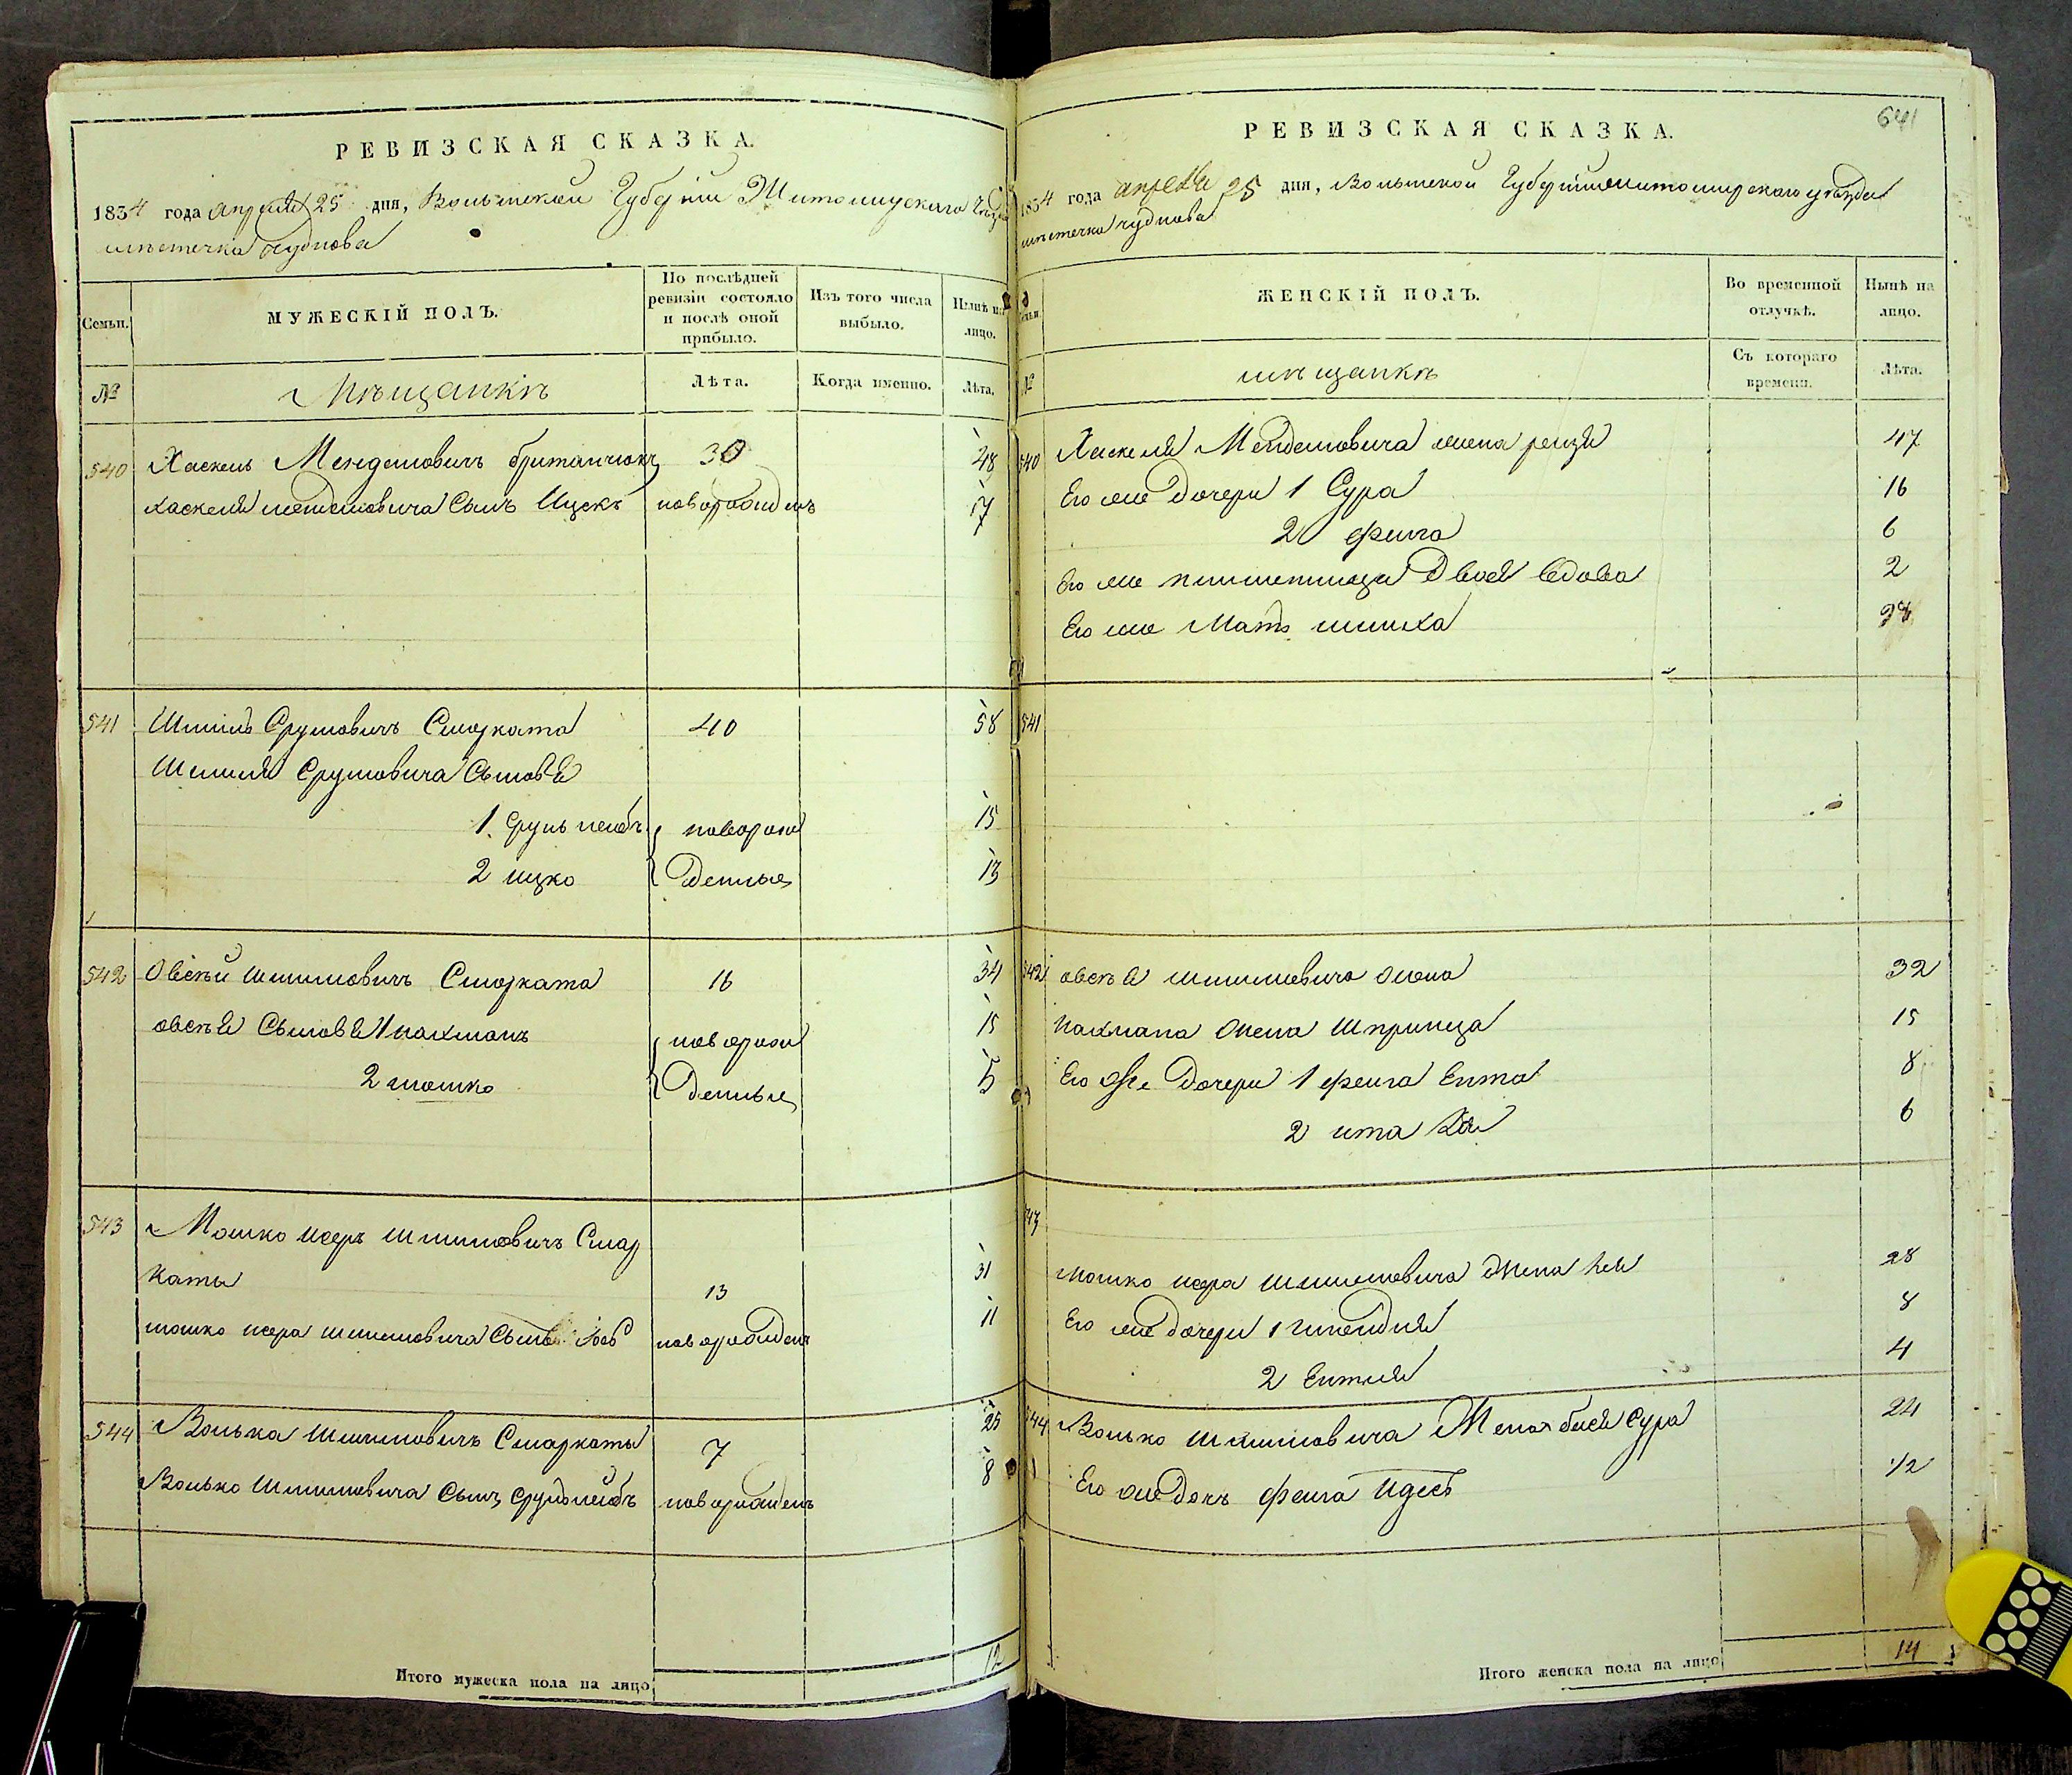 РЕВИЗСКАЯ СКАЗКА.
1834 года апреля 25 дня, Волынской Губернии Житомирскаго уезда
местечка Чуднова
Семьи.
МУЖЕСКІЙ ПОЛЪ.
По послѣдней ревизіи состояло и послѣ оной прибыло.
Изъ того числа выбыло.
Нынѣ на лицо.
№
Лѣта.
Когда именно.
Лѣта.
540 Хаскель Менделовичъ 30 48
Хаскеля Менделовича Сынъ Ицекъ новорожденъ 7
541 Шмиль Сруловичъ Смарката 40 58
Шмиля Сруловича Сыновья
1 Сруль лейбъ новорож 15
2 ицко денные 13
542 Овсѣй Шмиловичъ Смарката 16 34
овсѣя Сыновья 1 нахманъ новорож 15
2 мошко денные 5
543 Мошко Шмиловичъ Смар
каты 13 31
мошко Шмилевича Сынъ новорожден 11
544 Волька Шмилевичъ Смаркаты 7 25
Волько Шмилевича Сынъ Срульлейбъ новорожденъ 8
Итого мужеска пола на лицо 12
641
РЕВИЗСКАЯ СКАЗКА.
1834 года апреля 25 дня, Волынской Губернии Житомирскаго уѣзда
мѣстечка Чуднова
Семьи.
ЖЕНСКІЙ ПОЛЪ.
Во временной отлучкѣ.
Нынѣ на лицо.
№
Съ котораго времени.
Лѣта.
540 Хаскеля Менделовича жена рейзя 47
Его же дочери 1 Сура 16
2 фейга 6
Его же Двоя 2
Его же Мать
541
542 овсѣя Шмилевича жена 32
нахмана жена Шпринца 15
Его же дочери 1 фейга Ента 8
2 ита хая 6
543
мошко Шмилевича жена 28
Его же дочери 1 8
2 Ентля 4
544 Волько Шмилевича Жена бася Сура 24
Его же дочь фейга Идесъ 1/2
Итого женска пола на лицо 14